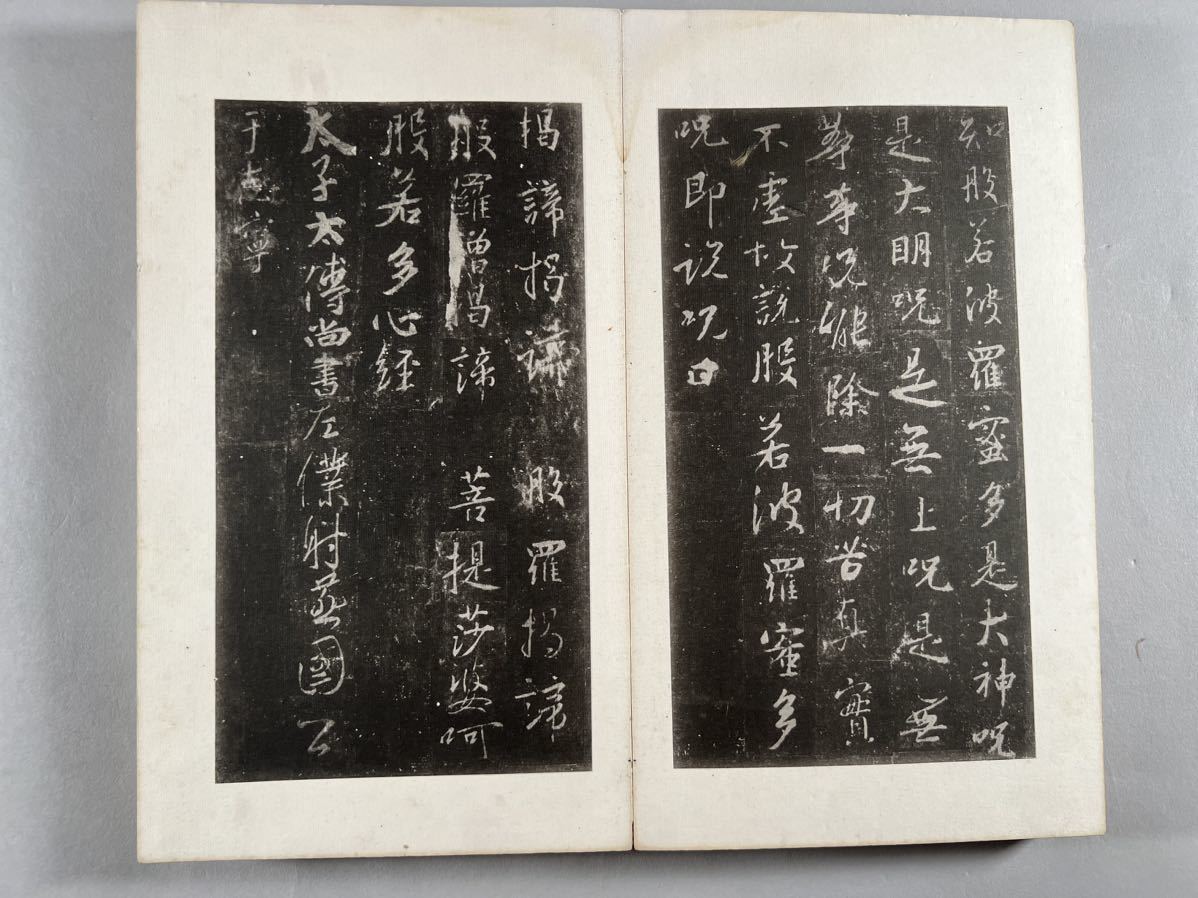 知般若波羅蜜多是大神呪
是大明呪是無上呪是無
等等呪能除一切苦真實
不虛故說般若波羅蜜多
呪即說呪曰
揭諦揭諦 般羅揭諦
般羅僧揭諦 菩提莎婆呵
般若多心經
太子太傅尚書左僕射燕國公
于志寧